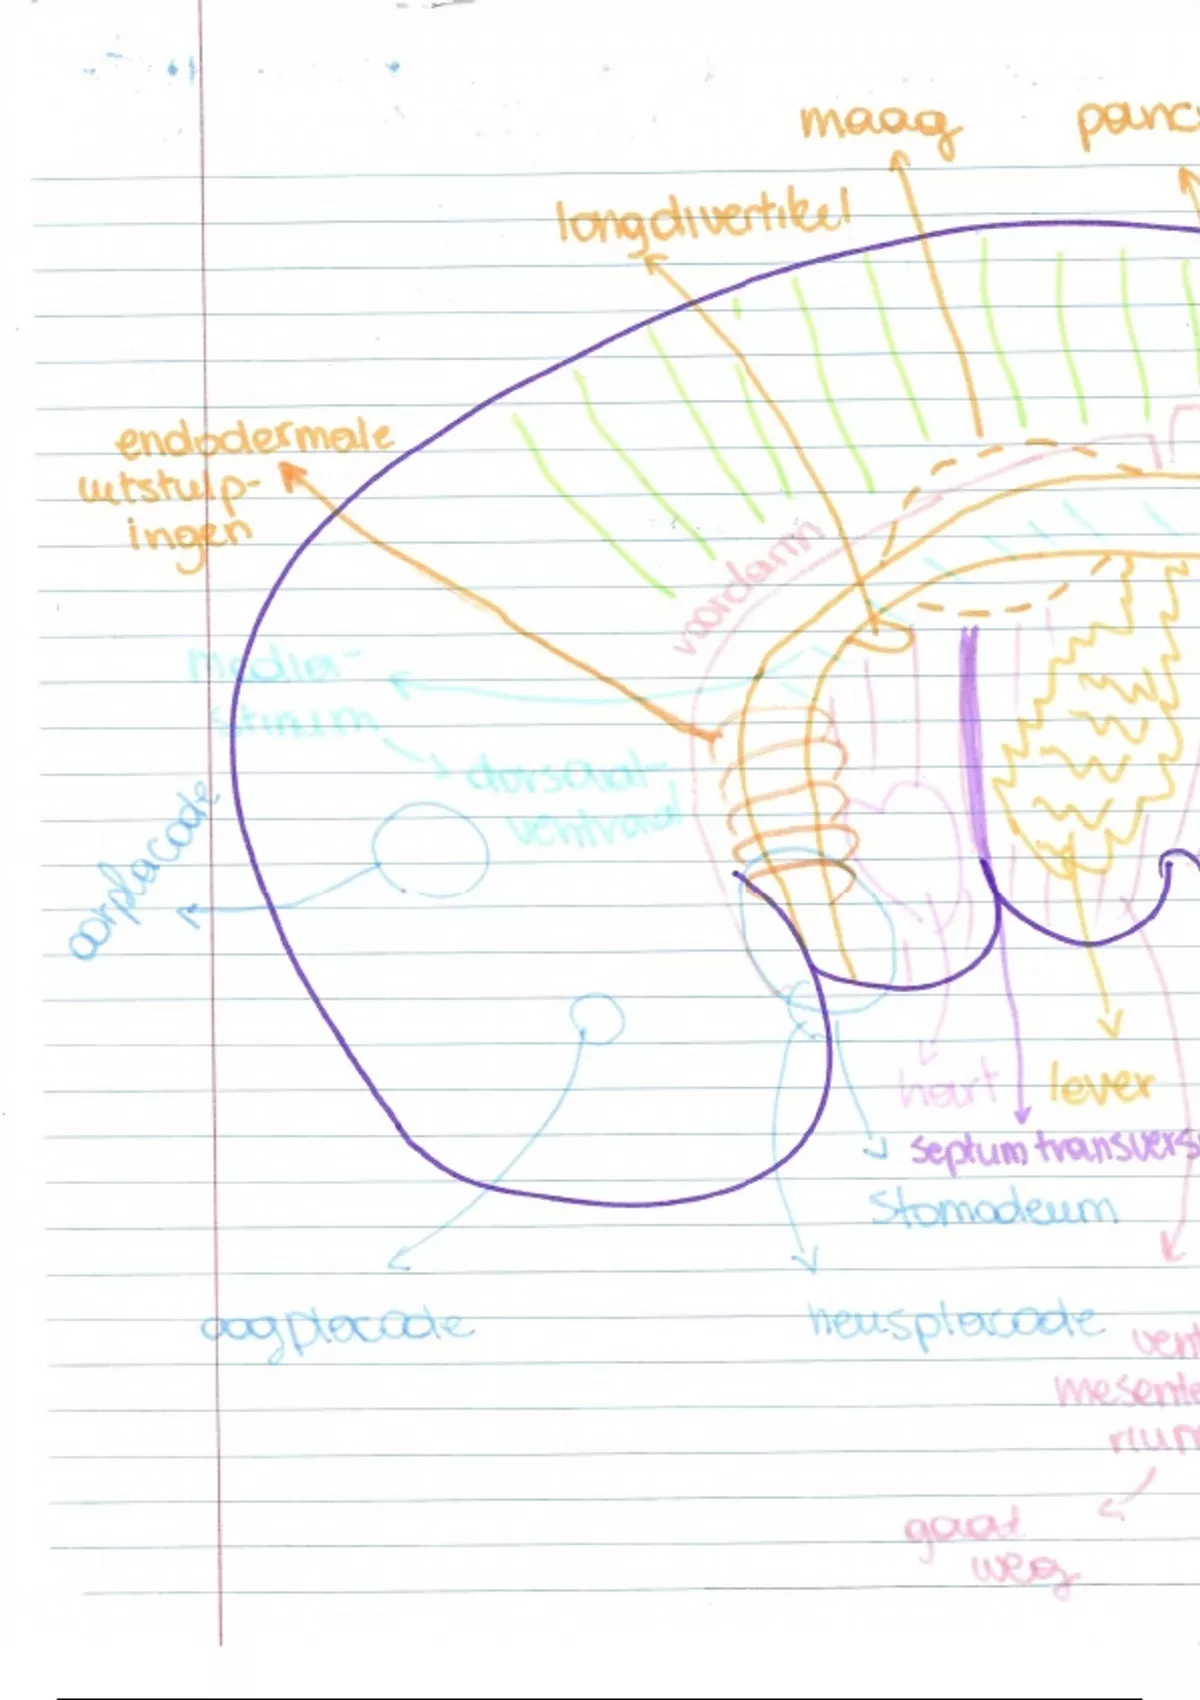 maag
panc
longdivertikel
endodermale
uitstulp-
ingen
voordarm
Media-
stinum
dorsaal-
ventraal
oorplacode
hart
lever
septum transvers
Stomodeum
oogplacode
neusplacode
vent
mesente
rium
gaat
weg